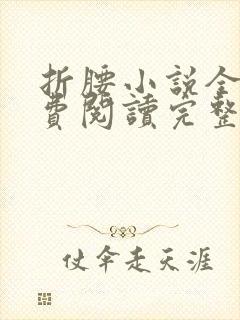 折腰小說全
費閱讀完整
仗伞走天涯